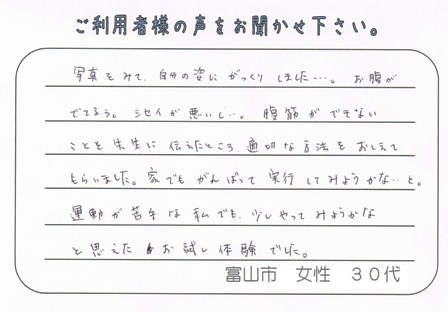 ご利用者様の声をお聞かせ下さい。
写真をみて、自分の姿にがっくりしました…。お腹が
でてるぅ。シセイが悪いし…。腹筋ができない
ことを先生に伝えたところ、適切な方法をおしえて
もらいました。家でもがんばって実行してみようかな…と。
運動が苦手な私でも、少しやってみようかな
と思えたお試し体験でした。
富山市 女性 30代